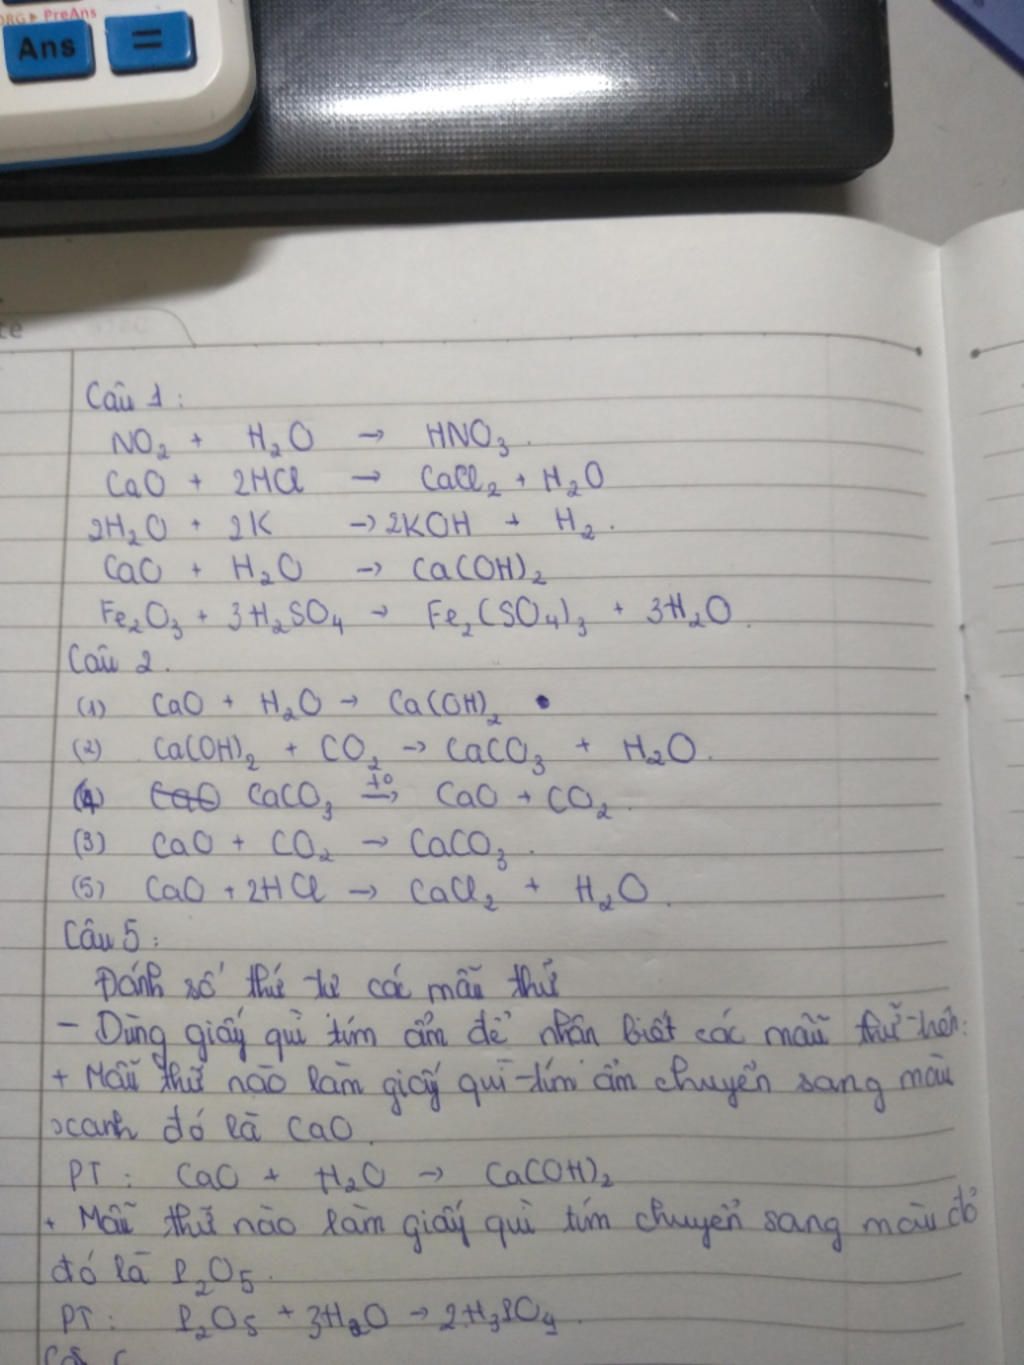 PreAns
Ans =
te
Câu 1:
NO₂ + H₂O → HNO₃.
CaO + 2HCl → CaCl₂ + H₂O
2H₂O + 2K → 2KOH + H₂.
CaO + H₂O → Ca(OH)₂
Fe₂O₃ + 3H₂SO₄ → Fe₂(SO₄)₃ + 3H₂O.
Câu 2.
(1) CaO + H₂O → Ca(OH)₂
(2) Ca(OH)₂ + CO₂ → CaCO₃ + H₂O.
(4) CaO CaCO₃ t° → CaO + CO₂.
(3) CaO + CO₂ → CaCO₃.
(5) CaO + 2HCl → CaCl₂ + H₂O.
Câu 5:
Đánh số thứ tự các mẫu thử
- Dùng giấy quì tím ẩm để nhận biết các mẫu thử trên:
+ Mẫu thử nào làm giấy quì tím ẩm chuyển sang màu
xanh đó là CaO.
PT: CaO + H₂O → Ca(OH)₂
+ Mẫu thử nào làm giấy quì tím chuyển sang màu đỏ
đó là P₂O₅.
PT: P₂O₅ + 3H₂O → 2H₃PO₄.